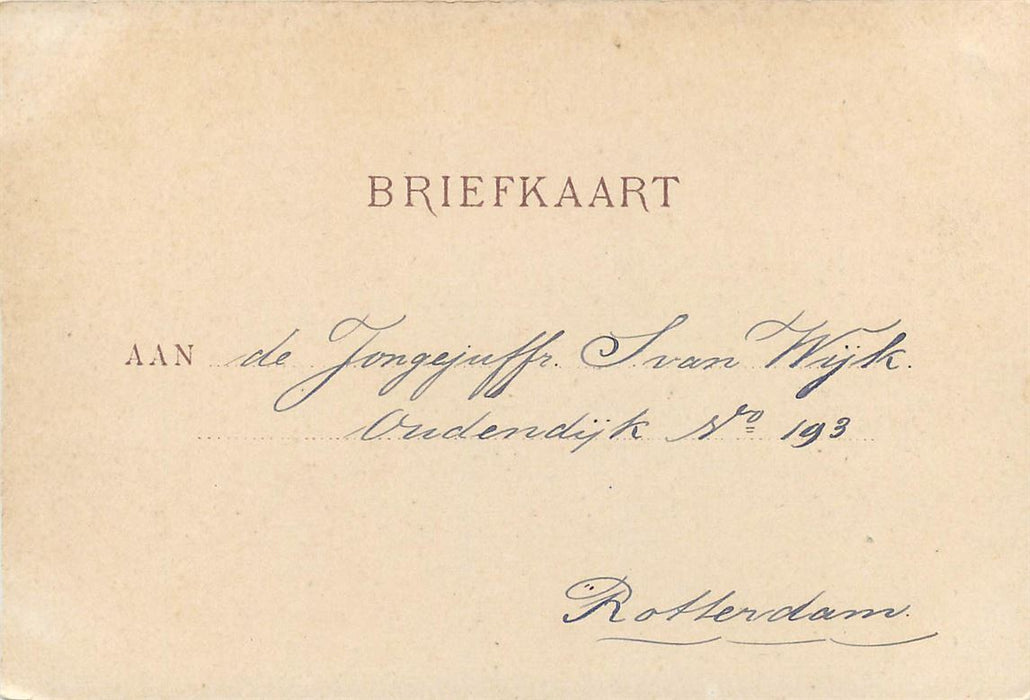 BRIEFKAART
AAN de Jongejuffr. S van Wijk.
Oudendijk Nro 193
Rotterdam.